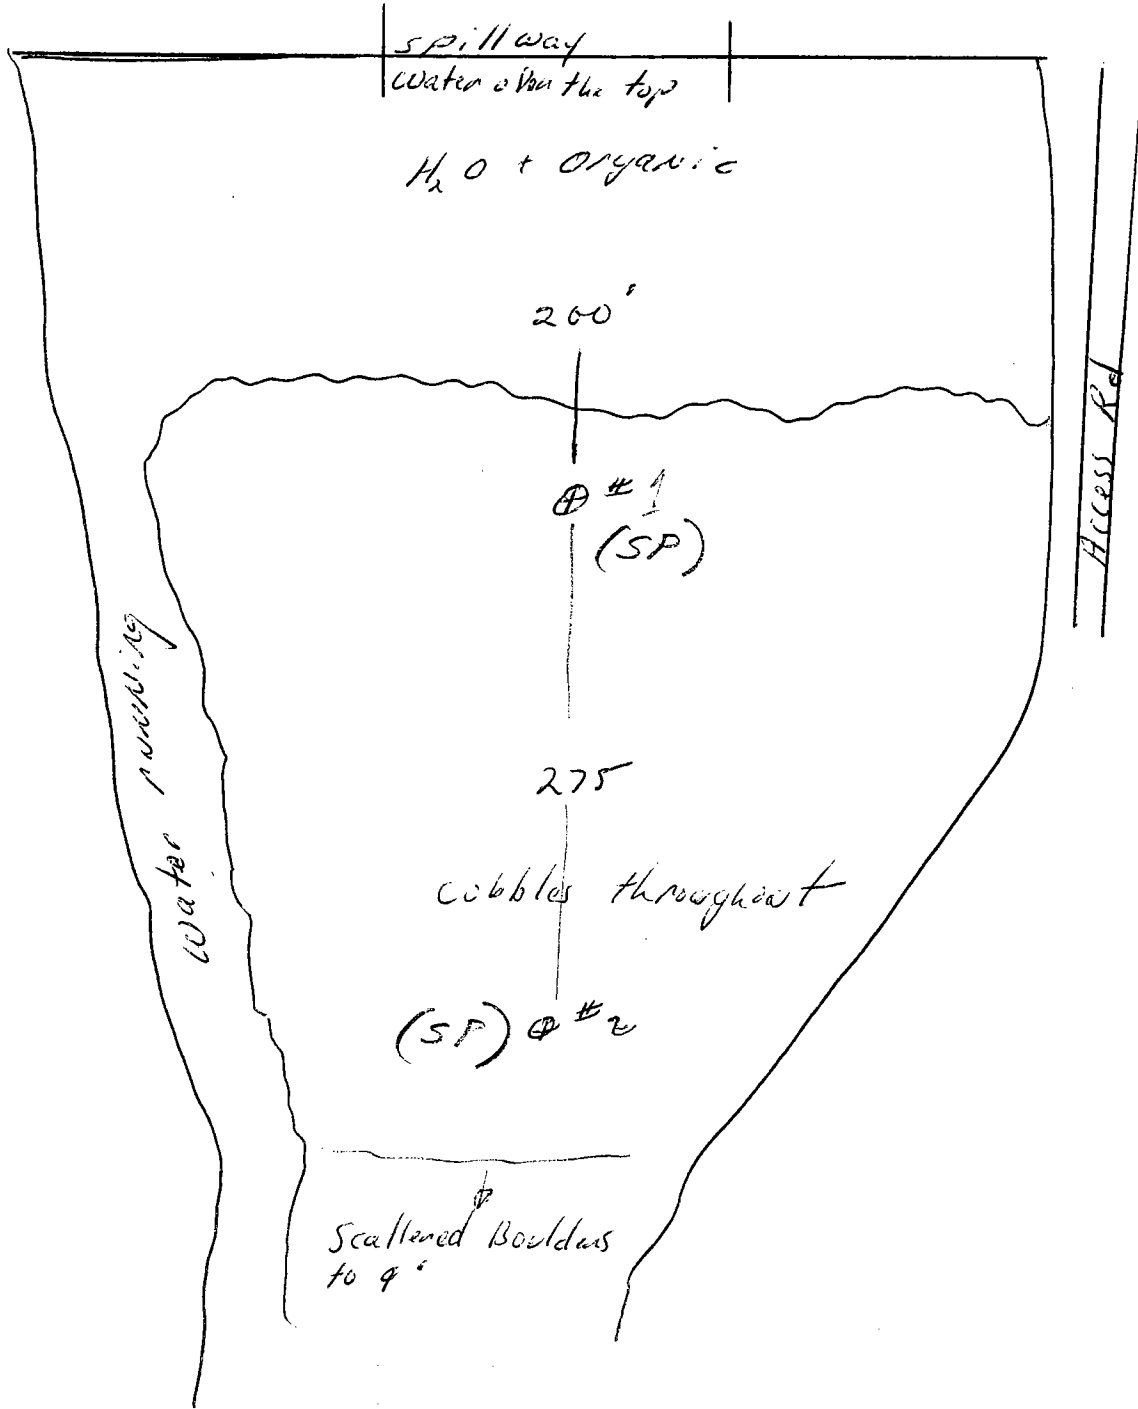 spillway
water over the top
H₂O + Organic
200'
Access Rd
#1
(SP)
water running
275
cobbles throughout
(SP) #2
Scattered Boulders
to 4'